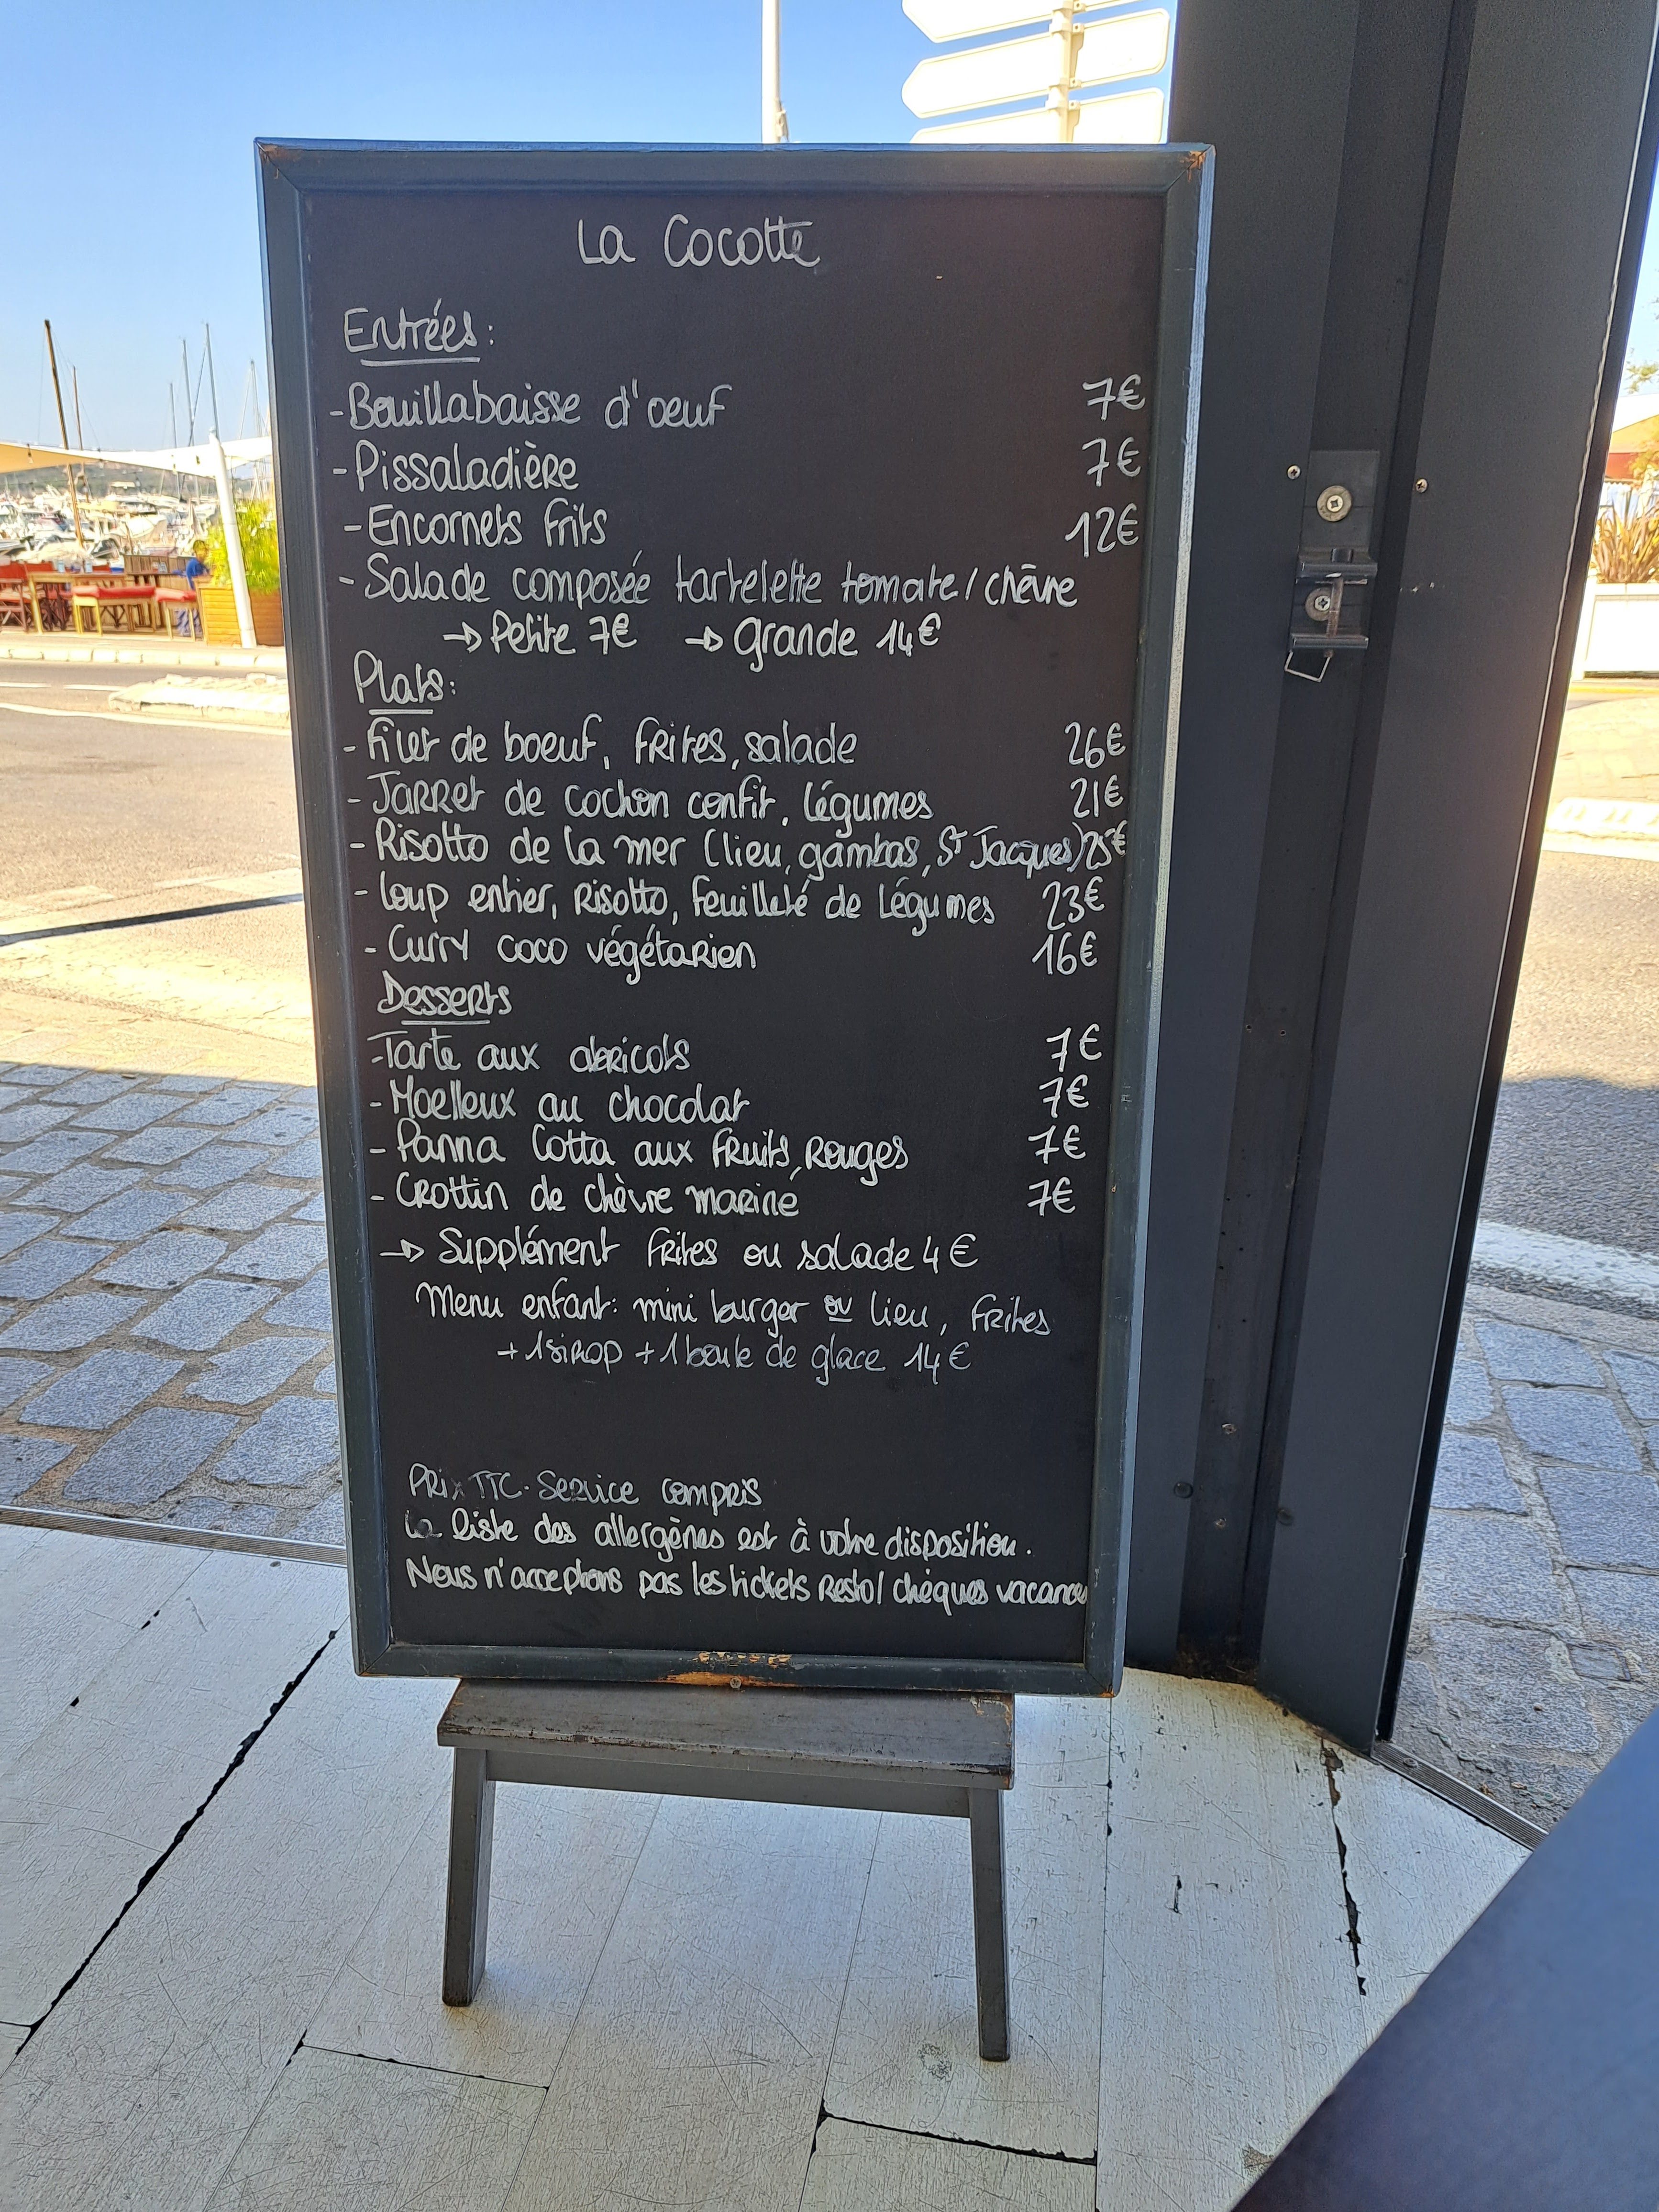 La Cocotte
Entrées:
-Bouillabaisse d'oeuf 7€
-Pissaladière 7€
-Encornets frits 12€
-Salade composée tartelette tomate/chèvre
→ Petite 7€ → Grande 14€
Plats:
-Filet de boeuf, frites, salade 26€
-Jarret de cochon confit, légumes 21€
-Risotto de la mer (lieu, gambas, St Jacques) 25€
-Loup entier, Risotto, feuilleté de légumes 23€
-Curry coco végétarien 16€
Desserts
-Tarte aux abricots 7€
-Moelleux au chocolat 7€
-Panna Cotta aux fruits rouges 7€
-Crottin de chèvre mariné 7€
→ Supplément frites ou salade 4€
Menu enfant: mini burger ou lieu, frites
+ 1 sirop + 1 boule de glace 14€
Prix TTC. Service compris
La liste des allergènes est à votre disposition.
Nous n'acceptons pas les tickets resto/ chèques vacances